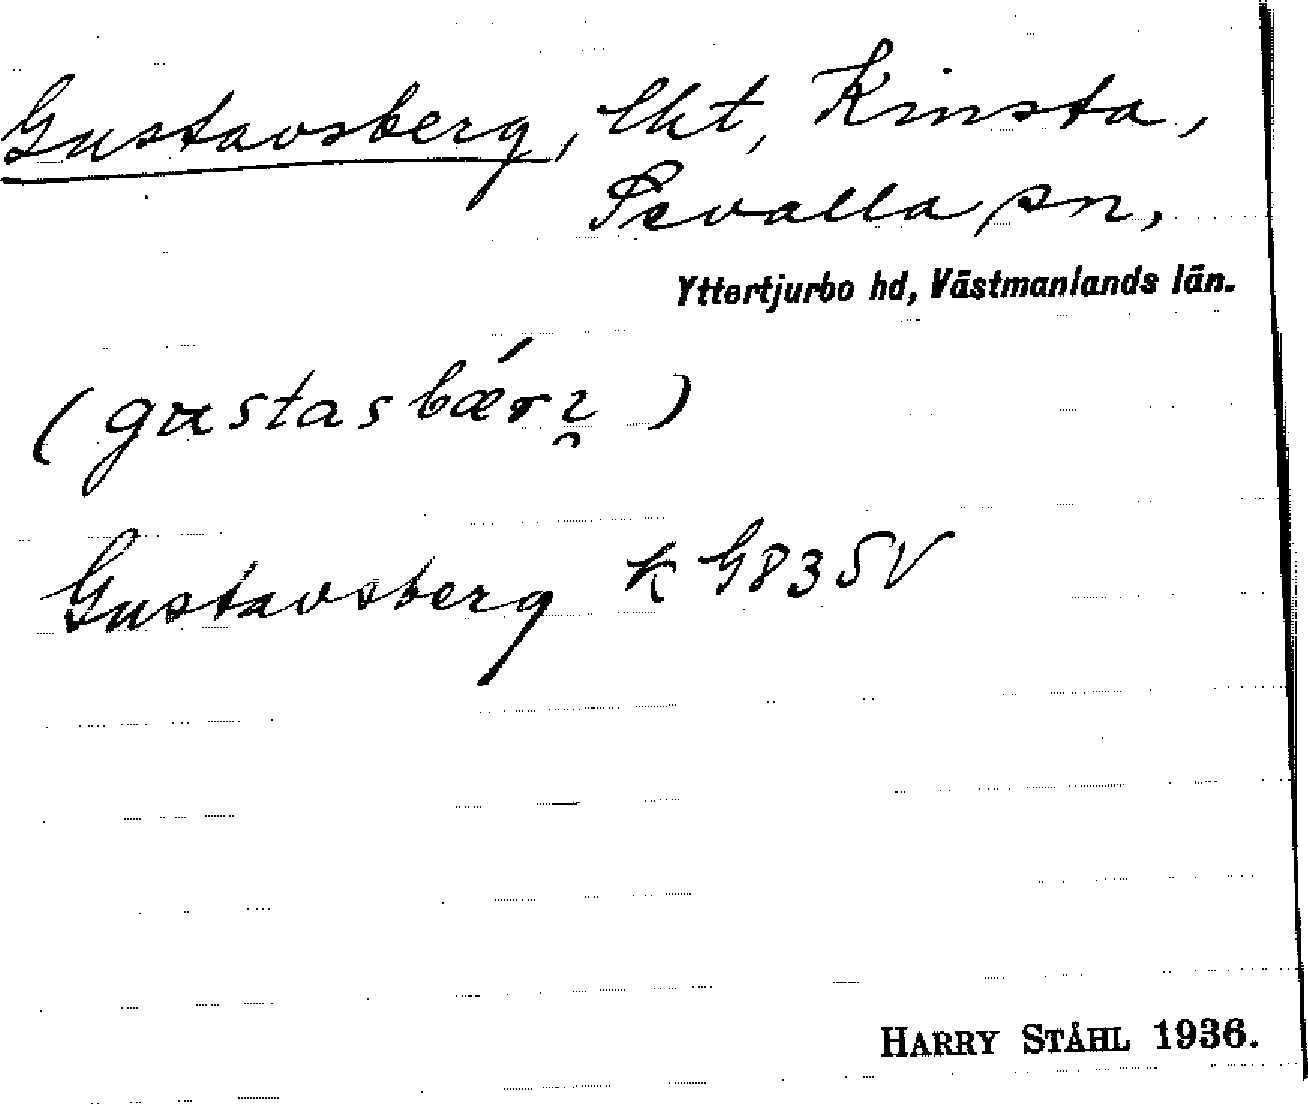 Gustavsberg, lht, Kinsta,
Sevalla sn,
Yttertjurbo hd, Västmanlands län.
(gustasbær̥ȝ)
Gustavsberg k G835V
HARRY STÅHL 1936.